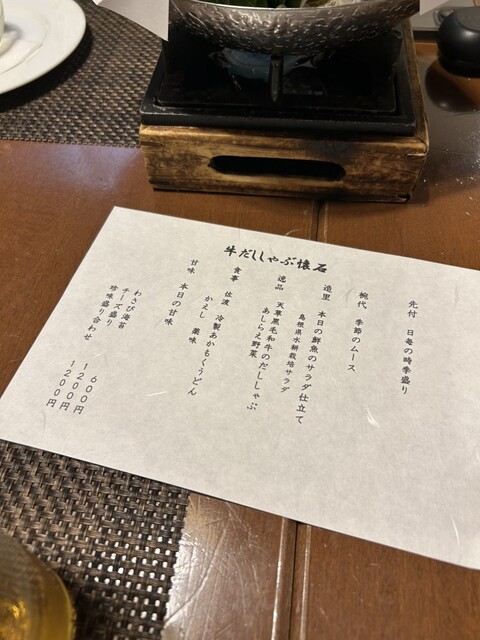 牛だししゃぶ懐石
先付 日毎の時季盛り
椀代 季節のムース
造里 本日の鮮魚のサラダ仕立て
島根県水耕栽培サラダ
逸品 天草黒毛和牛のだししゃぶ
あしらえ野菜
食事 佐渡 冷製あかもくうどん
かえし 薬味
甘味 本日の甘味
わさび海苔 600円
チーズ盛り 1200円
珍味盛り合わせ 1200円